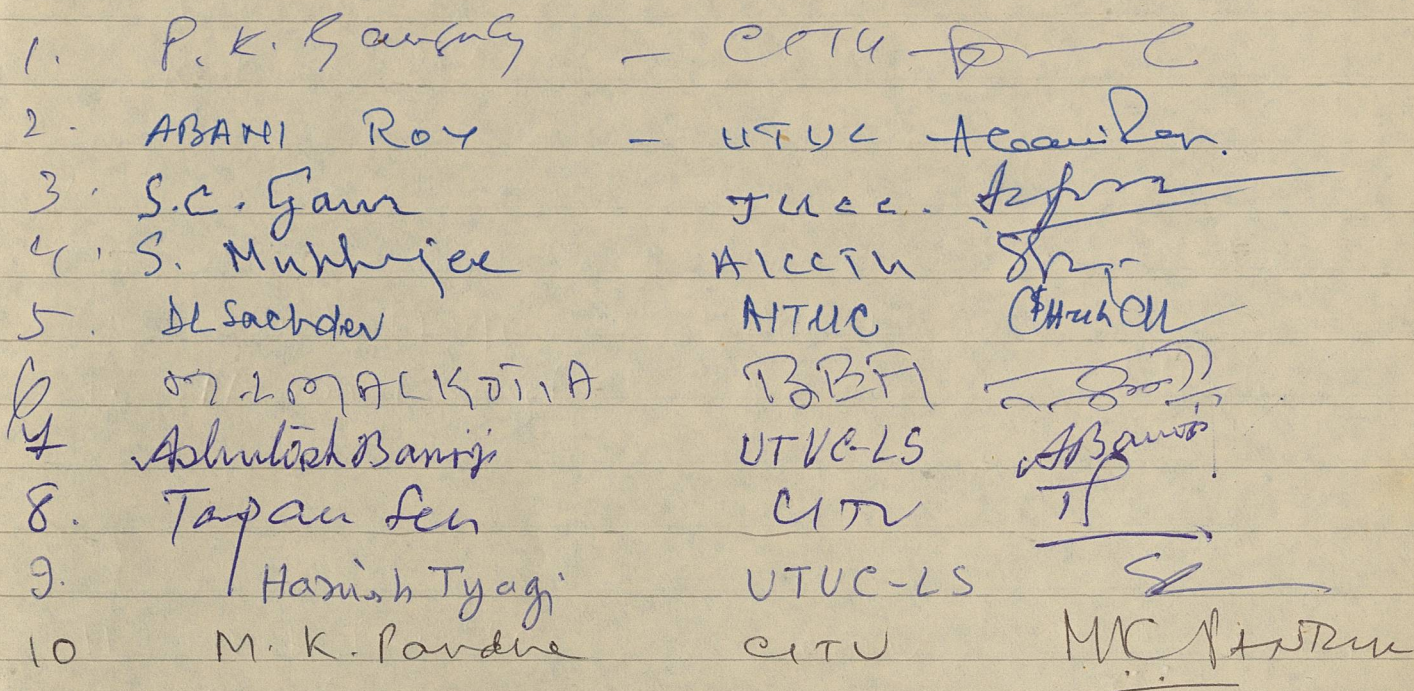 1. P. K. Ganguly - CITU
2. ABANI ROY - UTUC Abani Roy.
3. S.C. Gaur TUCC.
4. S. Mukherjee AICCTU
5. DL Sachdev AITUC
6 M.L MALKOTIA BBA
7 Ashutosh Banerji UTUC-LS ABanerji
8. Tapan Sen CITU
9. Harish Tyagi UTUC-LS
10 M. K. Pandhe CITU MK PANDHE